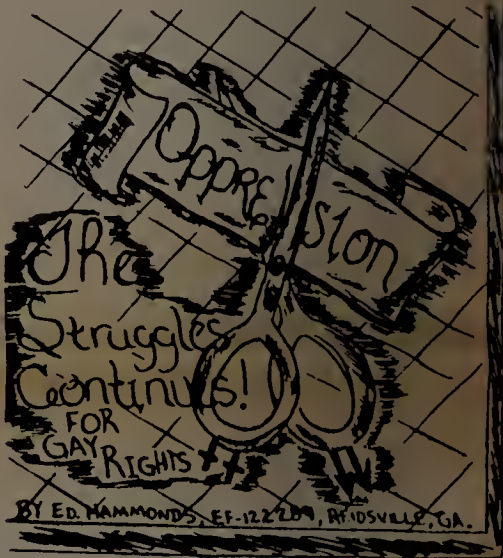 Oppression
The
Struggles
Continues!
FOR
GAY RIGHTS
BY ED. HAMMONDS, REIDSVILLE, GA.